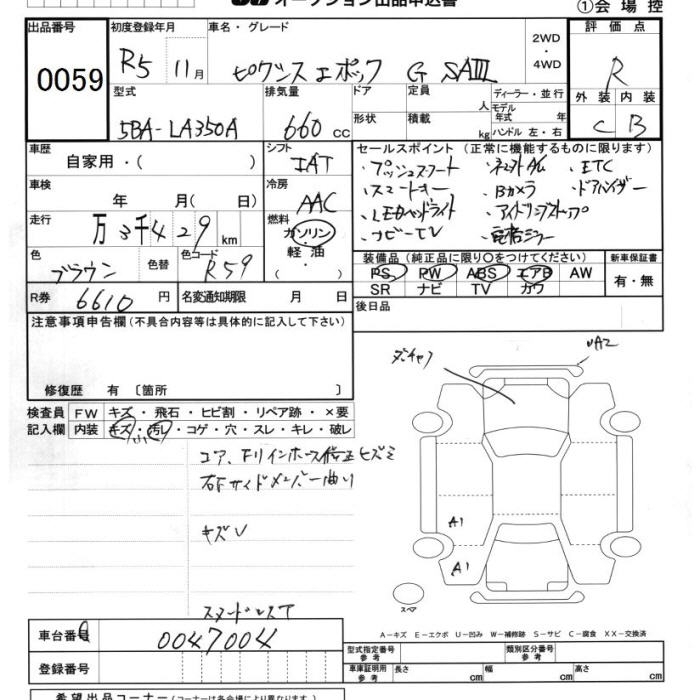 オークション出品申込書
①会場控
出品番号 初度登録年月 車名・グレード 2WD・4WD 評価点
0059 R5 11月 ピクシスエポック G SAⅢ R
型式 排気量 ドア 定員 人 ディーラー・並行 外装 内装
モデル年式 年
5BA-LA350A 660cc 形状 積載 kg ハンドル 左・右 C B
車歴 シフト セールスポイント (正常に機能するものに限ります)
自家用・( ) IAT
・プッシュスタート ・ETC
車検 冷房 ・スマートキー ・Bカメラ
年 月( 日) AAC ・LEDヘッドライト ・アイドリングストップ
走行 燃料 ・ナビーTV ・電格ミラー
万3千429km ガソリン・軽油・
色 色替 色コード
ブラウン R59
装備品 (純正品に限り〇をつけてください) 新車保証書
PS PW ABS エアB AW 有・無
SR ナビ TV カワ
R券 6610円 名変通知期限 月 日 後日品
注意事項申告欄(不具合内容等は具体的に記入して下さい)
修復歴 有 〔箇所 〕
検査員記入欄 FW キズ・飛石・ヒビ割・リペア跡・×要
内装 キズ・汚レ・コゲ・穴・スレ・キレ・破レ
コア、Fインホース修正ヒズミ
右Fサイドメンバー曲り
キズV
A2
A1
A1
スペア
A-キズ E-エクボ U-凹み W-補修跡 S-サビ C-腐食 XX-交換済
車台番号 0047004
登録番号
型式指定番号 参考 類別区分番号 参考
車庫証明用 参考 長さ cm 幅 cm 高さ cm
希望出品コーナー (コーナーは各会場により異なります。)